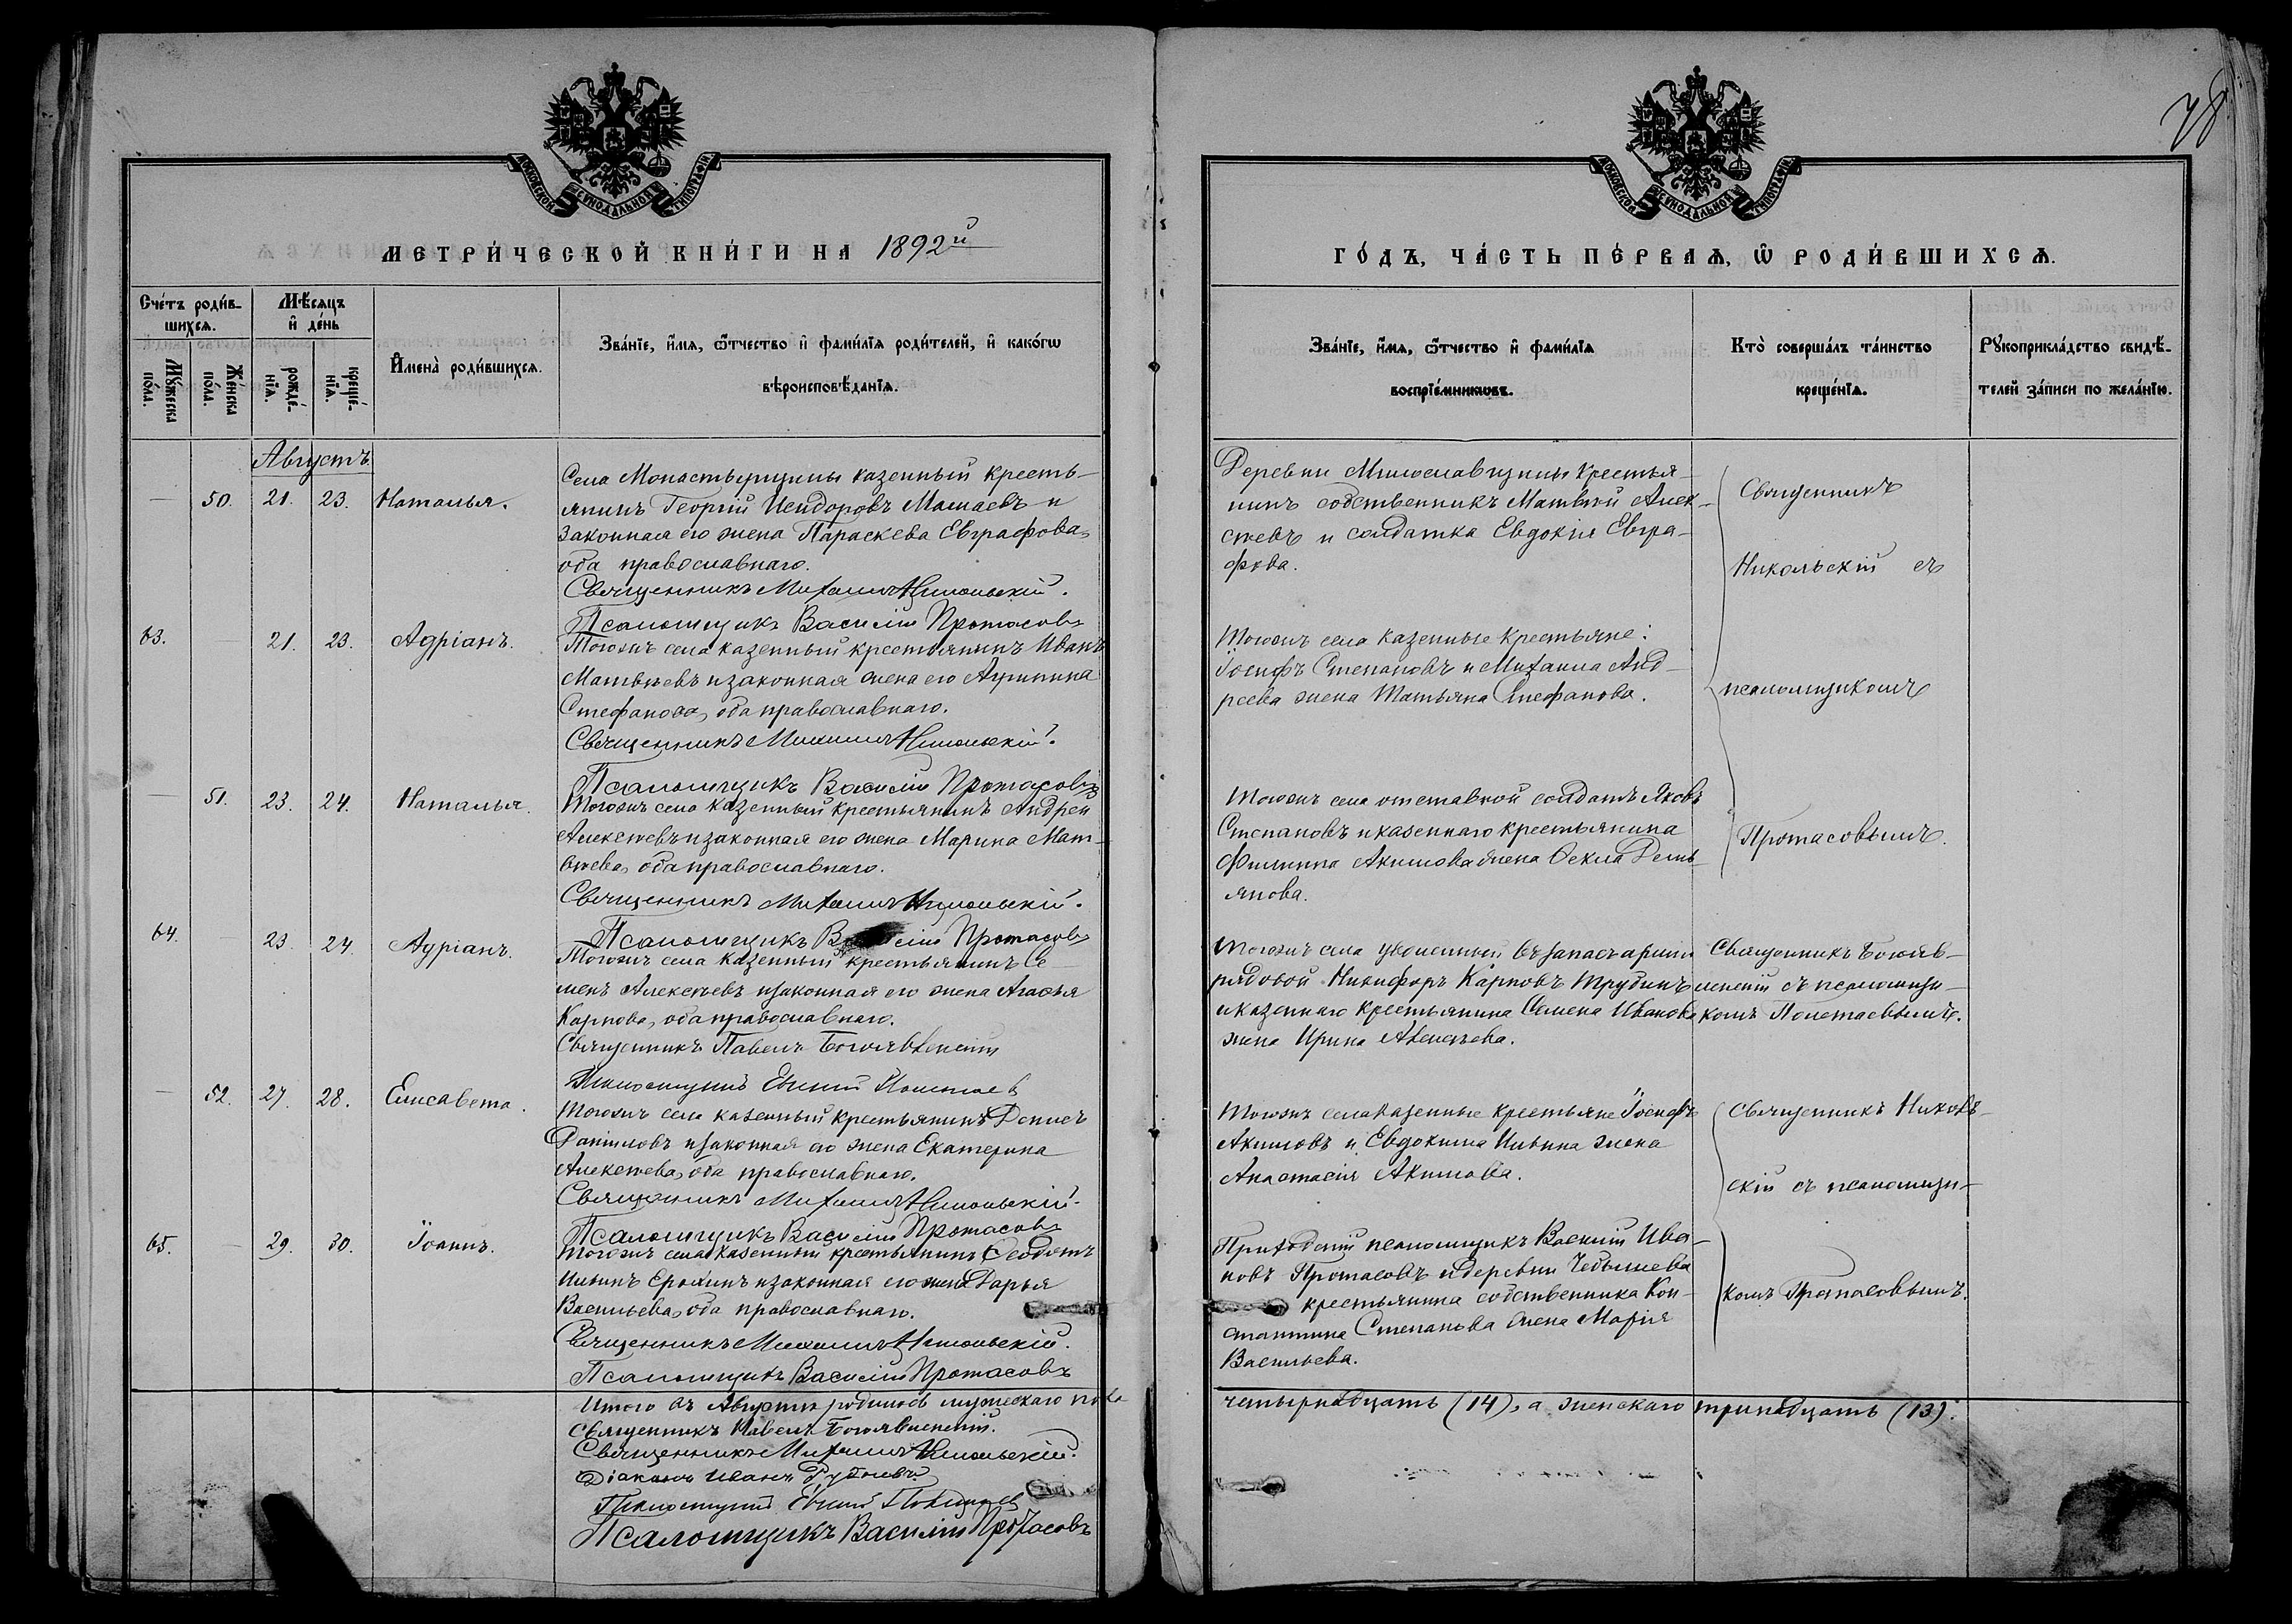 78
МОСКОВСКОЙ СѴНОДАЛЬНОЙ ТИПОГРАФІИ
МОСКОВСКОЙ СѴНОДАЛЬНОЙ ТИПОГРАФІИ
МЕТРИ́ЧЕСКОЙ КНИ́ГИ НА 1892й
ГО́ДЪ, ЧА́СТЬ ПЕ́РВАѦ, Ѽ РОДИ́ВШИХСѦ.
Сче́тъ роди́в-
шихсѧ.
Мѣ́сѧцъ
и҆ де́нь
И҆мена̀ роди́вшихсѧ.
Зва́нїе, и҆́мѧ, ѻ҆́тчество и҆ фами́лїѧ роди́телей, и҆ како́гѡ
вѣроисповѣ́данїѧ.
Мꙋ́жеска по́ла.
Же́нска по́ла.
рожде́нїѧ.
креще́нїѧ.
Зва́нїе, и҆́мѧ, ѻ҆́тчество и҆ фами́лїѧ
воспрїе́мникѡвъ.
Кто̀ соверша́лъ та́инство
креще́нїѧ.
Рꙋкоприкла́дство свидѣ́-
телей за́писи по жела́нїю.
Августъ
— 50. 21. 23. Наталья.
Села Монастырщины казенный кресть-
янинъ Георгій Исидоровъ Машаевъ и
законная его жена Параскева Евграфова,
оба православнаго.
Священникъ Михаилъ Никольскій.
Псаломщикъ Василій Протасовъ
Деревни Милославщины крестья-
нинъ собственникъ Матвѣй Алек-
сѣевъ и солдатка Евдокія Евгра-
фова.
Священникъ
Никольскій съ
псаломщикомъ
Протасовымъ.
63. 21. 23. Адріанъ.
Тогожъ села казенный крестьянинъ Иванъ
Матвѣевъ и законная жена его Агрипина
Стефанова, оба православнаго.
Священникъ Михаилъ Никольскій.
Псаломщикъ Василій Протасовъ
Тогожъ села казенные крестьяне:
Іосифъ Степановъ и Михаила Анд-
реева жена Татьяна Стефанова.
— 51. 23. 24. Наталья.
Тогожъ села казенный крестьянинъ Андрей
Алексѣевъ и законная его жена Марина Мат-
вѣева, оба православнаго.
Священникъ Михаилъ Никольскій.
Псаломщикъ Василій Протасовъ
Тогожъ села отставной солдатъ Яковъ
Степановъ и казеннаго крестьянина
Филиппа Акимова жена Ѳекла Демь-
янова.
64. — 23. 24. Адріанъ.
Тогожъ села казенный крестьянинъ Се-
менъ Алексѣевъ и законная его жена Агафья
Карпова, оба православнаго.
Священникъ Павелъ Богоявленскій
Псаломщикъ Евѳимій Полетаев
Тогожъ села уволенный въ запасъ арміи
рядовой Никифоръ Карповъ Трубинъ
и казеннаго крестьянина Семена Иванова
жена Ирина Алексѣева.
Священникъ Богояв-
ленскій съ псаломщи-
комъ Полетаевымъ.
— 52. 27. 28. Елисавета.
Тогожъ села казенный крестьянинъ Денисъ
Даниловъ и законная его жена Екатерина
Алексѣева, оба православнаго.
Священникъ Михаилъ Никольскій.
Псаломщикъ Василій Протасовъ
Тогожъ села казенные крестьяне Іосифъ
Акимовъ и Евдокима Ильина жена
Анастасія Акимова.
Священникъ Николь-
скій съ псаломщи-
комъ Протасовымъ.
65. — 29. 30. Іоаннъ.
Тогожъ села казенный крестьянинъ Ѳеодотъ
Ильинъ Ерохинъ и законная его жена Дарья
Васильева, оба православнаго.
Священникъ Михаилъ Никольскій.
Псаломщикъ Василій Протасовъ
Приходскій псаломщикъ Василій Ива-
новъ Протасовъ и деревни Чебышева
крестьянина собственника Кон-
стантина Степанова жена Марія
Васильева.
Итого въ Августѣ родилось мужескаго пола
четырнадцать (14), а женскаго тринадцать (13).
Священникъ Павелъ Богоявленскій.
Священникъ Михаилъ Никольскій.
Діаконъ Иванъ Рубцевъ
Псаломщикъ Евѳимій Полетаев
Псаломщикъ Василій Протасовъ